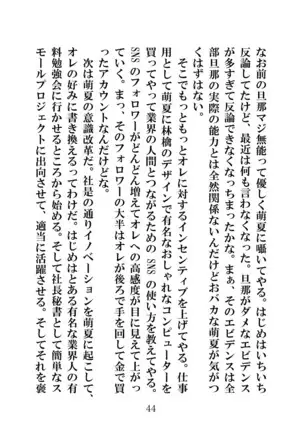 なお前の旦那マジ無能って優しく萌夏に囁いてやる。はじめはいちいち
反論してたけど、最近は何も言わなくなった。旦那がダメなエビデンス
が多すぎて反論できなくなっちまったかな。まぁ、そのエビデンスは全
部旦那の実際の能力とは全然関係ないんだけどおバカな萌夏が気がつ
くはずはない。
そこでもっともっとオレに対するインセンティブを上げてやる。仕事
用として萌夏に林檎のデザインで有名なおしゃれなコンピューターを
買ってやって業界の人間とつながるための SNS の使い方を教えてやる。
SNS のフォロワーがどんどん増えてオレへの高感度が目に見えて上がっ
ていく。まっ、そのフォロワーの大半はオレが後ろで手を回して金で買
ったアカウントなんだけどな。
次は萌夏の意識改革だ。社是の通りイノベーションを萌夏に起こして、
オレの好みに書き換えるってわけだ。はじめはとある有名な業界人の有
料勉強会に行かせるところから始める。そして社長秘書として簡単なス
モールプロジェクトに出向させて、適当に活躍させる。そしてそれを褒
44